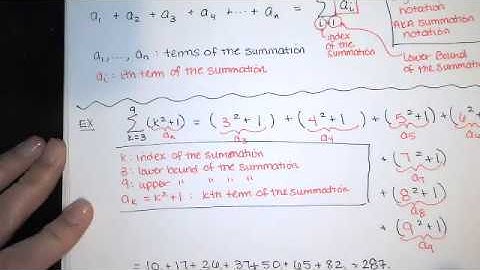 a₁ + a₂ + a₃ + a₄ + ⋯ + aₙ = Σ aᵢ
notation
AKA summation
notation
i 1
index of the summation
Lower Bound
of the Summation
a₁, ..., aₙ : terms of the summation
aᵢ : ith term of the summation
EX 9 Σ k=3 (k²+1) = (3²+1) + (4²+1) + (5²+1) + (6²+
aₙ a₃ a₄ a₅
k: index of the summation
3: lower bound of the summation
9: upper " " " "
aₖ = k²+1 : kth term of the summation
+ (7²+1)
a₇
+ (8²+1)
a₈
+ (9²+1)
a₉
= 10+17+26+37+50+65+82 = 287.